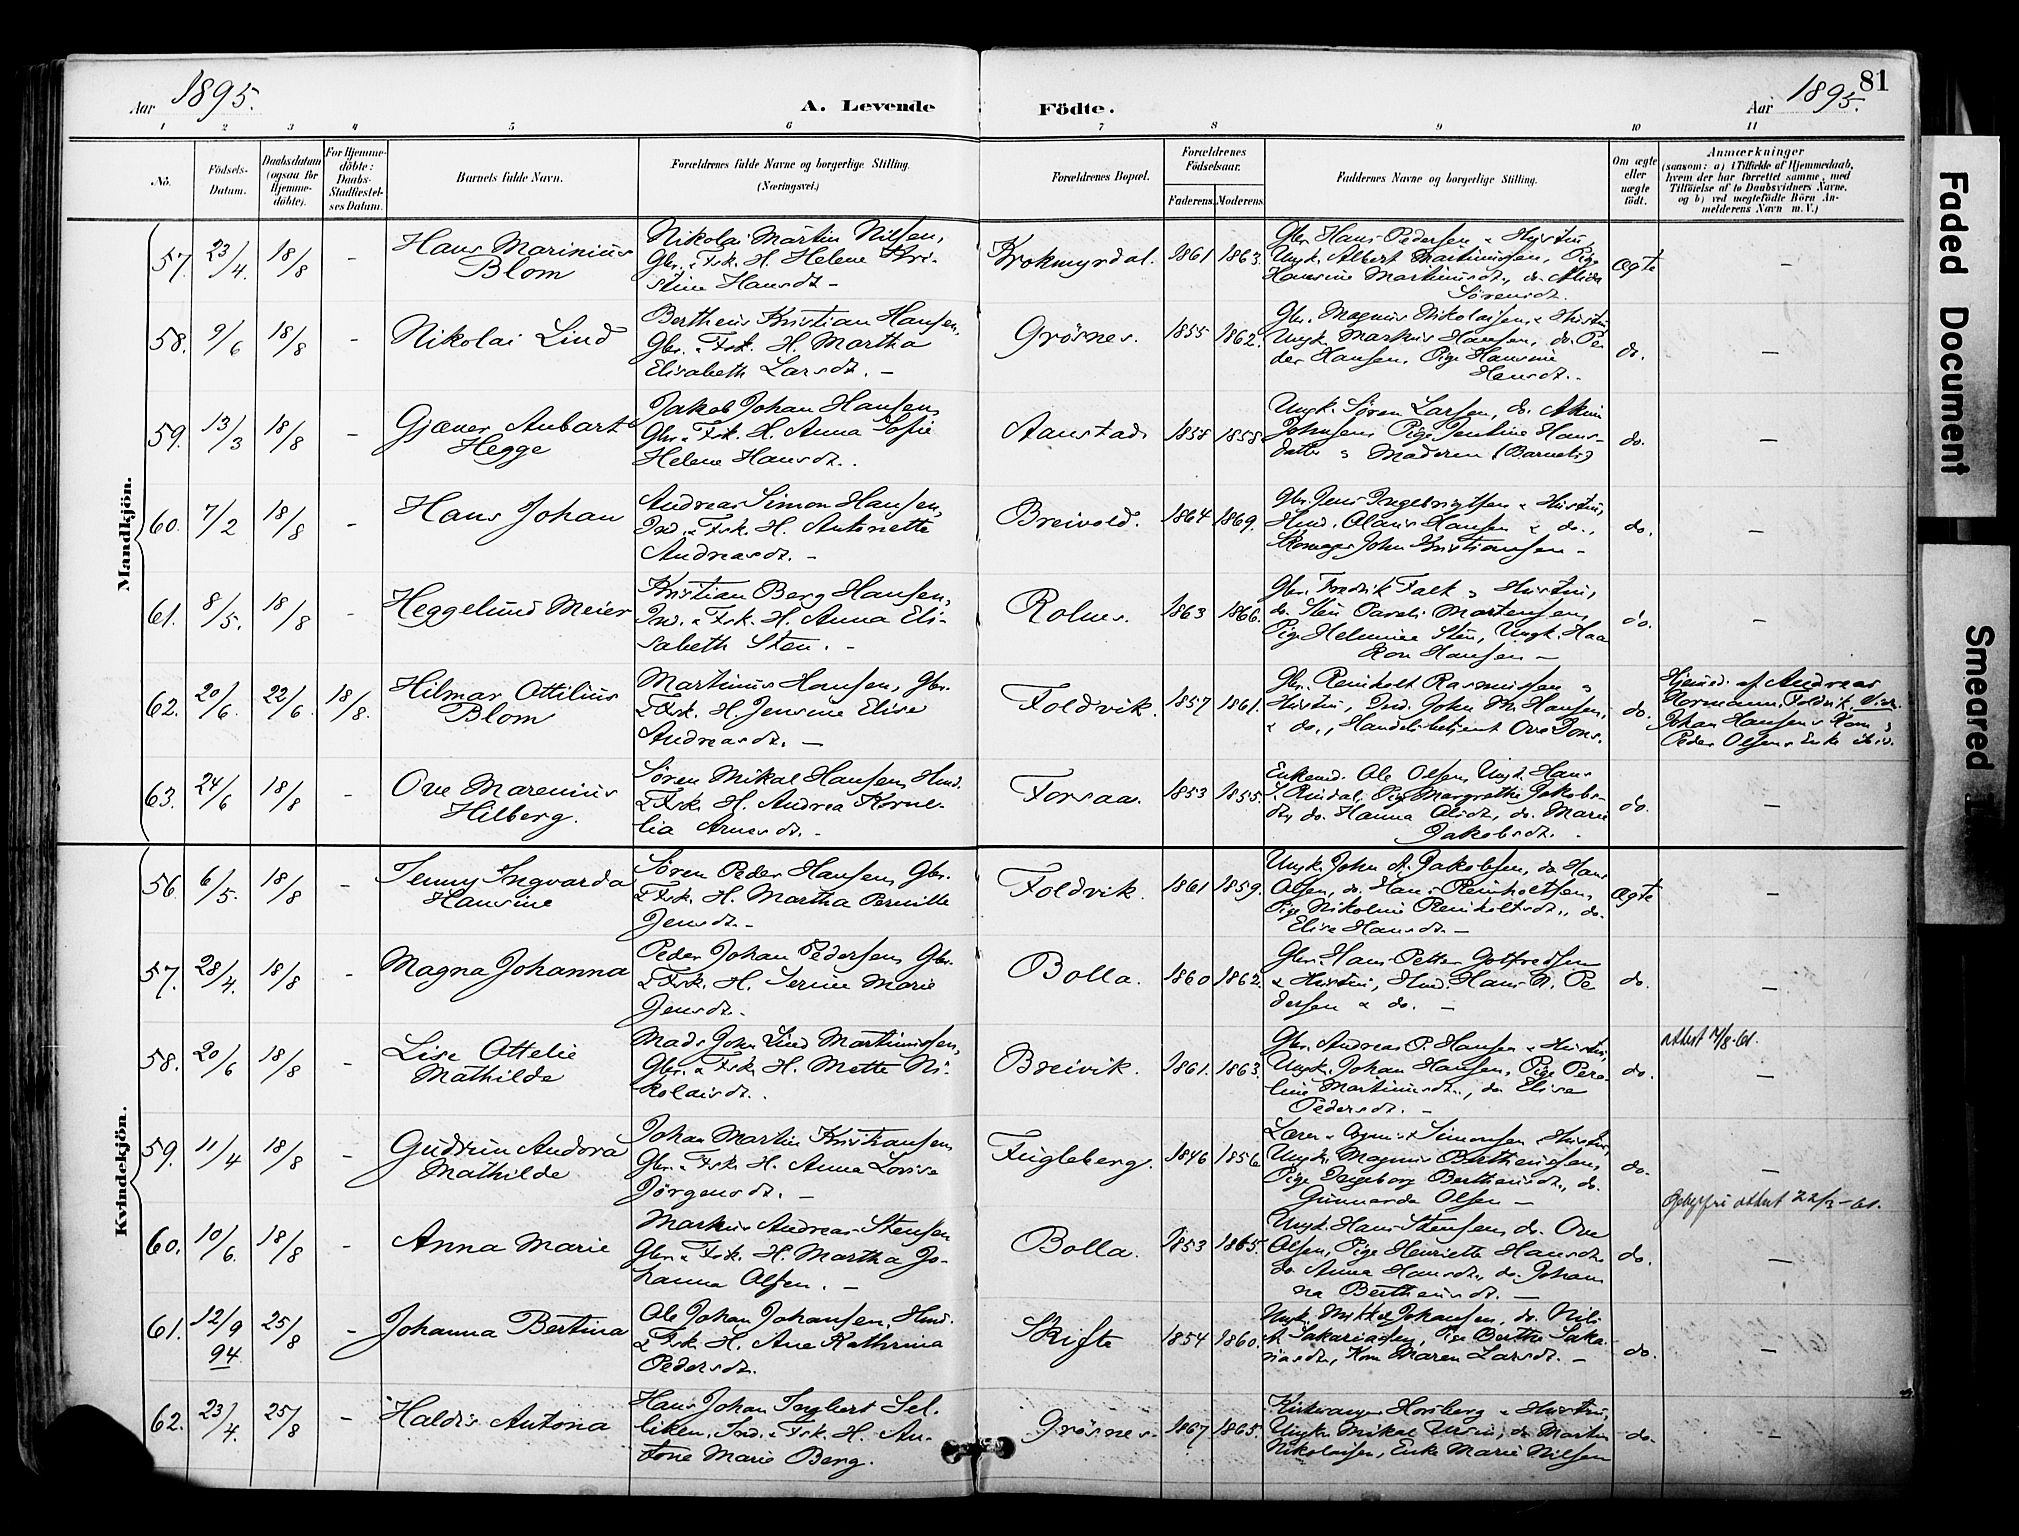 Aar 1895.
A. Levende Födte.
Aar 1895.
81
1 2 3 4 5 6 7 8 9 10 11
No.
Födsels-
Datum.
Daabsdatum
(ogsaa for
Hjemme-
döbte).
For Hjemme-
döbte:
Daabs-
Stadfæstel-
ses Datum.
Barnets fulde Navn.
Forældrenes fulde Navne og borgerlige Stilling.
(Næringsvei.)
Forældrenes Bopæl.
Forældrenes
Födselsaar.
Faderens. Moderens.
Faddernes Navne og borgerlige Stilling.
Om ægte
eller
uægte
födt.
Anmærkninger
(saasom: a) i Tilfælde af Hjemmedaab,
hvem der har forrettet samme, med
Tilföielse af to Daabsvidners Navne,
og b) ved uægtefödte Börn An-
melderens Navn m. V.)
Mandkjön.
57. 23/4. 18/8 - Hans Marinius
Blom
Nikolai Martin Nilsen,
Gbr. & Fsk. H. Helene Kri-
stine Hansdt. -
Krokmyrdal. 1861 1863.
Gbr. Hans Pedersen & Hustru,
Ungk. Albert Martinussen, Pige
Hansine Martinusdt., do. Alida
Sørensdt.
Ægte -
58. 9/6 18/8 - Nikolai Lind
Bertheus Kristian Hansen,
Gbr. & Fsk. H. Martha
Elisabeth Larsdt. -
Grösnes. 1855 1862.
Gbr. Magnus Nikolaisen & Hustru,
Ungk. Markus Hansen, do. Pe-
der Hansen, Pige Hansine
Hansdt.
do. -
59. 13/3 18/8 - Gjæver Aubart
Hegge
Jakob Johan Hansen,
Gbr. & Fsk. H. Anna Sofie
Helene Hansdt.
Aanstad. 1858.
Ungk. Sören Larsen, do.
Johnsen, Pige Jentine Hans-
datter & Moderen (Barnets)
do. -
60. 7/2 18/8 - Hans Johan
Andreas Simon Hansen,
Ind. & Fsk. H. Antonette
Andreasdt. -
Breivold. 1864 1869.
Gbr. Jens Ingebrigtsen & Hustru,
Hmd. Olaus Hansen & do.,
John Kristiansen -
do. -
61. 8/5. 18/8 - Heggelund Meier
Kristian Berg Hansen,
Ind. & Fsk. H. Anna Eli-
sabeth Sten. -
Rolnes. 1863 1866.
Gbr. Fredrik Falk & Hustru,
do. Sten Parelis Martensen,
Pige Helmine Sten, Ungk. Haa-
kon Hansen -
do. -
62. 20/6. 22/6. 18/8. Hilmar Ottilius
Blom
Martinus Hansen, Gbr.
& Fsk. H. Jensine Elise
Andreasdt. -
Foldvik. 1857 1861.
Gbr. Reinholt Rasmussen &
Hustru, Ind. John M. Hansen,
& do., Handelsbetjent Ove Dons.
do.
Hjemd. af Andreas
Normann, Foldvik,
Johan Hansens Kone &
Peder Olsens Enke
63. 24/6 18/8 - Ove Marenius
Hilberg.
Sören Mikal Hansen, Hmd.
& Fsk. H. Andrea Korne-
lia Arnesdt. -
Forsaa. 1853 1855.
Enkemd. Ole Olsen, Ungk. Hans
Rindal, Pige Margrethe Jakobs-
dt., do. Hanna Olsdt., do. Marie
Jakobsdt.
do. -
Kvindekjön.
56. 6/5. 18/8 - Jenny Ingvarda
Hansine
Sören Peder Hansen, Gbr.
& Fsk. H. Martha Pernille
Jensdt. -
Foldvik. 1861 1859.
Ungk. John A. Jakobsen, do. Hans
Olsen, do. Hans Reinholtsen,
Pige Nikoline Reinholtsdt., do.
Elise Hansdt. -
Ægte -
57. 28/4. 18/8 - Magna Johanna
Peder Johan Pedersen, Gbr.
& Fsk. H. Serine Marie
Jensdt. -
Bolla. 1860 1862.
Gbr. Hans Petter Gotfredsen
& Hustru, Hmd. Hans N. Pe-
dersen & do. -
do. -
58. 20/6 18/8 - Lise Ottelie
Mathilde
Mads John Lind Martinussen,
Gbr. & Fsk. H. Mette Ni-
kolaisdt.
Breivik. 1861. 1863.
Gbr. Andreas P. Hansen & Hustru,
Ungk. Johan Hansen, Pige Pero-
line Martinusdt., do. Elise
Pedersdt. -
do. -
attest 7/8-61.
59. 11/4 18/8 - Gudrun Andora
Mathilde
Johan Martin Kristiansen,
Gbr. & Fsk. H. Anna Lovise
Jörgensdt. -
Fugleberg. 1846 1856
Lærer Simonsen & Hustru,
Ungk. Magnus Bertheussen,
Pige Ingeborg Bertheusdt., do.
Gunnarda Olsen -
do. -
Gebyrfri attest 22/3-61.
60. 10/6. 18/8 - Anna Marie
Markus Andreas Stensen
Gbr. & Fsk. H. Martha Jo-
hanna Olsen. -
Bolla. 1853 1865.
Ungk. Hans Stensen, do. Ove
Olsen, Pige Henriette Hansdt.
do. Anna Hansdt., do. Johan-
na Bertheusdt. -
do. -
61. 12/9 94 25/8 - Johanna Bertina
Ole Johan Johansen, Hmd.
& Fsk. H. Ane Kathrina
Pedersdt.
Skifte 1854 1860.
Ungk. Mikkel Johansen, do. Nils
A. Sakariassen, Pige Berthe Saka-
riasdt., Kone Maren Larsdt. -
do. -
62. 23/4. 25/8 - Haldis Antona
Hans Johan Ingbert Sel-
liken, Ind. & Fsk. H. An-
tone Marie Berg.
Grösnes. 1867 1865.
Kirkesanger Horsberg & Hustru,
Ungk. Mikal Ursin, do. Martin
Nikolaisen, Enke Marie Nilsen
do. -
Faded Document
Smeared